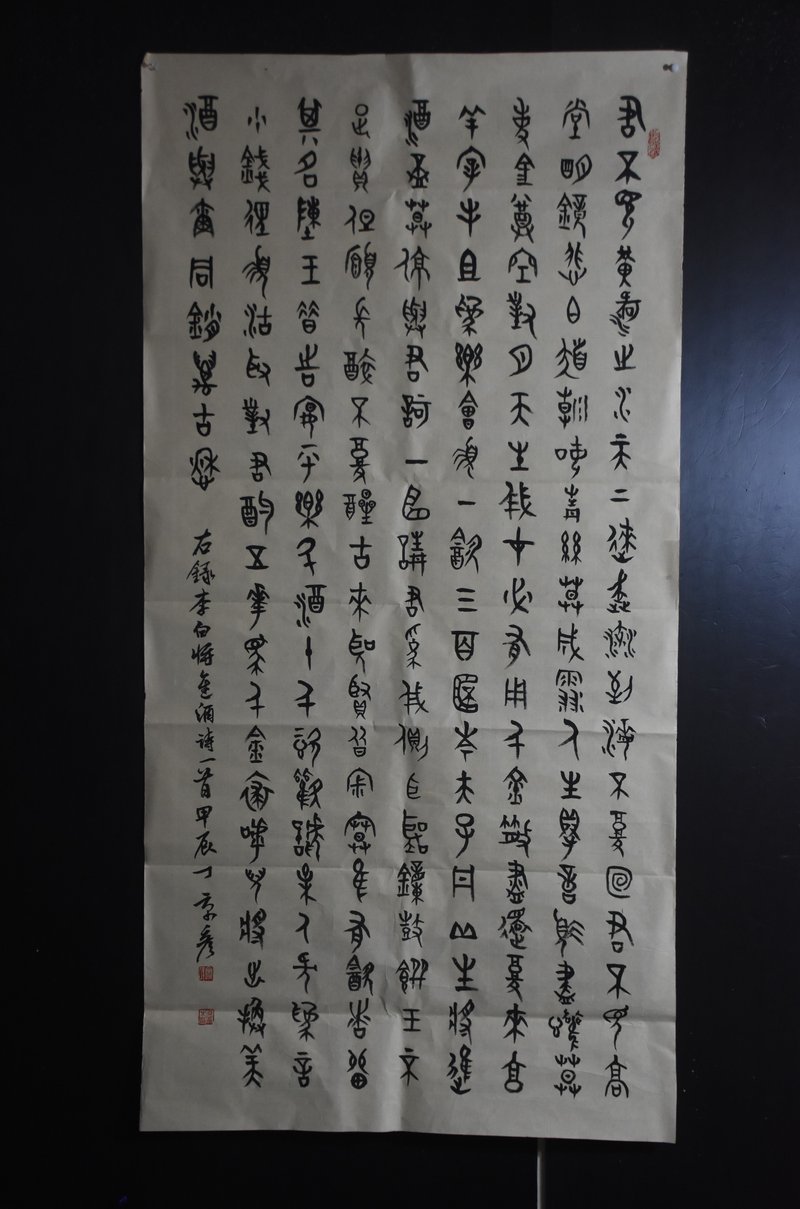 君不見黃河之水天上來奔流到海不復回君不見高
堂明鏡悲白髮朝如青絲暮成雪人生得意須盡歡莫
使金尊空對月天生我才必有用千金散盡還復來烹
羊宰牛且為樂會須一飲三百杯岑夫子丹丘生將進
酒杯莫停與君歌一曲請君為我側耳聽鐘鼓饌玉不
足貴但願長醉不復醒古來聖賢皆寂寞惟有飲者留
其名陳王昔時宴平樂斗酒十千恣歡謔主人何為言
少錢徑須沽取對君酌五花馬千金裘呼兒將出換美
酒與爾同銷萬古愁 右錄李白將進酒詩一首甲辰丁